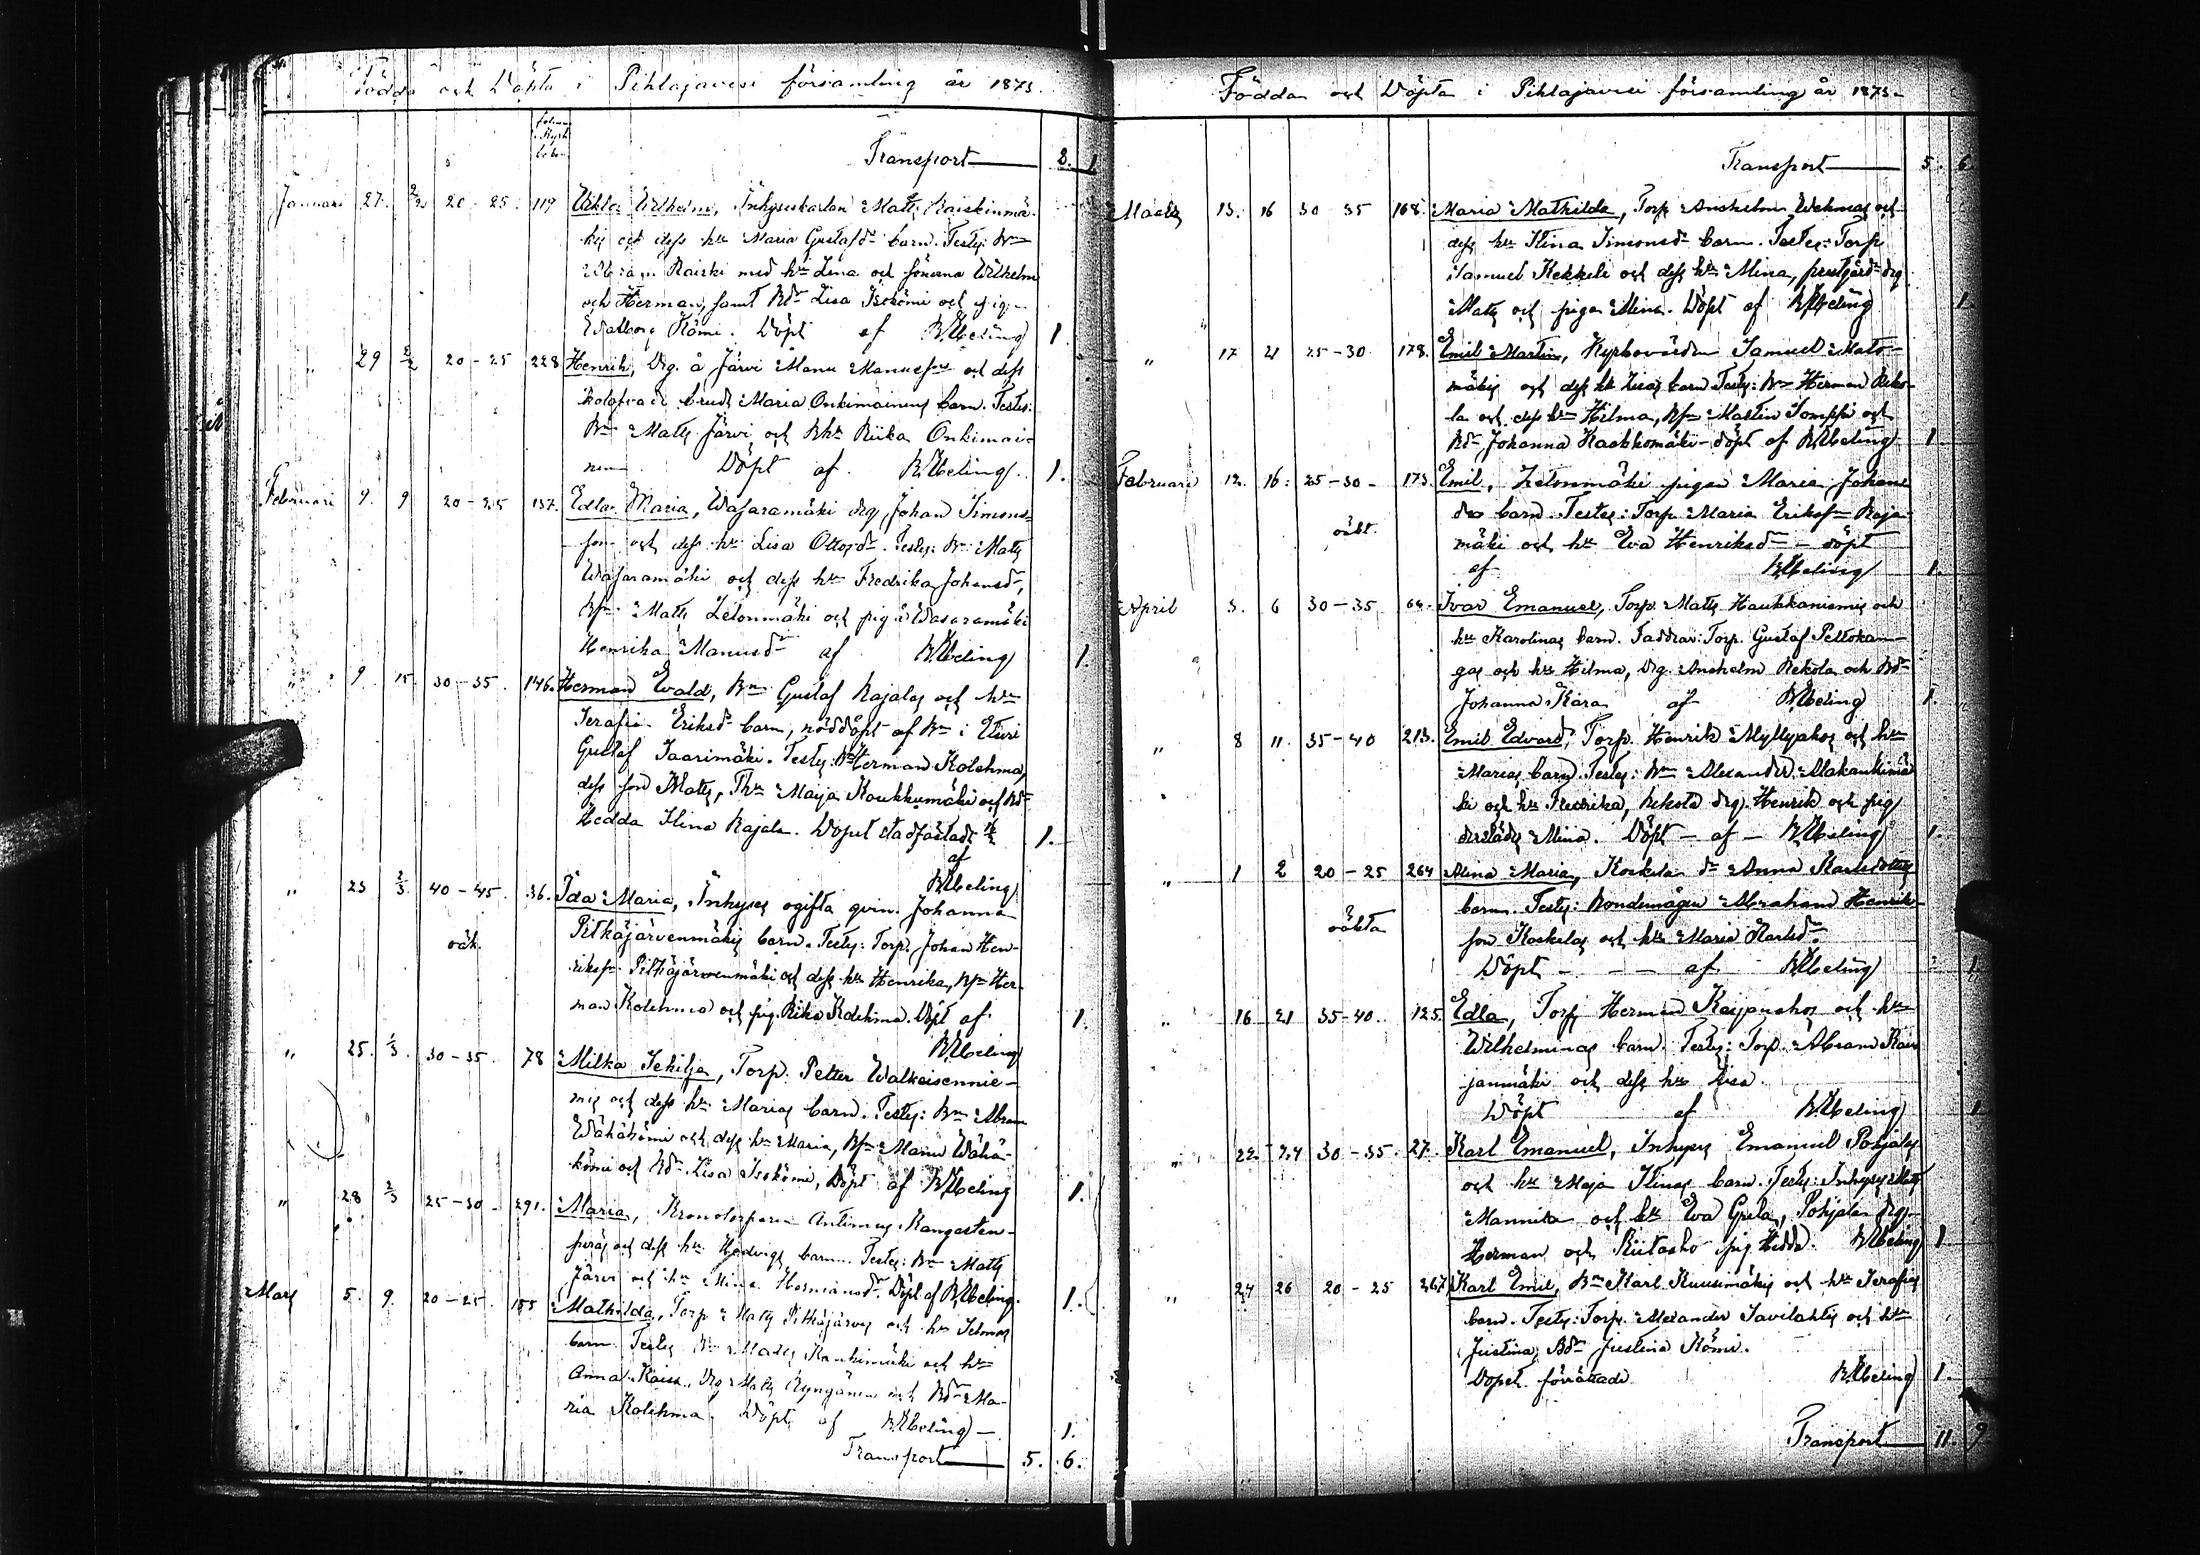 Födda och Döpta i Pihlajavesi församling år 1873.
Transport 1
Januari 27. 2/2 20 - 25. 119 Wilhelm, Inhyseskarlen Matts Raiskinmä-
kis och dess hu Maria Gustafsdr barn. Testes: Bn
Raiski med hu Lina och sönerna Wilhelm
och Herman, samt Bdr Lisa Isokömi och pig.
Walborg Kömi. Döpt af B.Ebeling 1
" 29 2/2 20 - 25 228 Henrik, Drg. å Järvi Manu Manuss. och dess
brud Maria Onkimäinens barn. Testes:
Bn Matts Järvi och Bhu Riika Onkimäi-
nen Döpt af B.Ebeling 1.
Februari 9. 9 20 - 25 157. Edla Maria, Wasaramäki drg Johan Simons-
son och dess hu Lisa Ottosdr. Testes: Bn Matts
Wasaramäki och dess hu Fredrika Johansdr,
Bs. Matts Letonmäki och pig. Wasaramäki
Henrika Manusdr af B.Ebeling 1.
" 9. 15. 30 - 35. 146. Herman Evald, Bn Gustaf Rajalas och hu
Serafia Eriksdr barn, nöddöpt af Bn i Etseri
Gustaf Saarimäki. Testes: Bn Herman Kolehma,
dess son Matts, Thu Maija Koukkumäki och Bdr
Hedda Stina Rajala. Dopet stadfästadt
af
B.Ebeling 1.
" 23 2/3 40 - 45. 36. Ida Maria, Inhyses ogifta qvin. Johanna
oäk. Pitkäjärvenmäkis barn. Testes: Torp. Johan Hen-
rikss. Pitkäjärvenmäki och dess hu Henrika, Bs Her-
man Kolehma och pig. Rika Kolehma. Döpt af
B.Ebeling 1.
" 25. 2/3. 30 - 35. 78 Milka Sehilja, Torp. Petter Walkeisennie-
mis och dess hu Marias barn. Testes: Bn Abram
Wähäkömi och dess hu Maria, Bs Manu Wähä-
kömi och Bdr Lisa Isokömi, Döpt af B.Ebeling 1.
" 28 2/3 25 - 30 - 291. Maria, Kronotorparen Antimus Kangasten-
peräs och dess hu Hedvigs barn. Testes: Bn Matts
Järvi och hu Mina Hermansdr. Döpt af B.Ebeling. 1.
Mars 5. 9. 20 - 25. 155 Mathilda, Torp Matts Pitkäjärvis och hu Selmas
barn Testes Bn Matts Kankimäki och hu
Anna Kaisa, Drg Matts och Bdr Ma-
ria Kolehma. Döpt af B.Ebeling - 1.
Transport 5. 6.
Födda och Döpta i Pihlajavesi församling år 1873.
Transport 5. 6
Mars 13. 16 30 - 35 168. Maria Mathilda, Torp Anshelm Wehmas och
dess hu Stina Simonsdr barn. Testes: Torp
Samuel Kekkele och dess hu Mina, prestgårds drg
Matts och pigan Mina. Döpt af B.Ebeling 1
" 17 21 25 - 30 178. Emil Martin, Kyrkovärden Samuel Mato-
mäkis och dess hu Lisas barn Testes: Bn Herman Reko-
la och dess hu Hilma, Bs Martin Somppi och
Bdr Johanna Haukkomäki - döpt af B.Ebeling 1
Februari 12. 16. 25 - 30 - 173. Emil, Letonmäki pigan Maria Johans-
oäkt. drs barn. Testes: Torp. Maria Raja-
mäki och hu Eva Henriksdr - döpt
af B.Ebeling 1.
April 3. 6 30 - 35 Ivar Emanuel, Torp. Matts Haukkaniemis och
hu Karolinas barn. Faddrar: Torp. Gustaf Peltokan-
gas och hu Hilma, Drg. Anshelm Rekola och Bdr
Johanna Kära af B.Ebeling 1.
" 8 11. 35 - 40 213. Emil Edvard, Torp. Henrik Myllyahos och hu
Marias barn. Testes: Bn Alexander Alakankimä-
ki och hu Fredrika, Rekola drg. Henrik och pig
Mina. Döpt - af - B.Ebeling 1.
" 1 2 20 - 25 264 Alina Maria, Koskela dr Anna Karlsdotters
oäkta barn. Testes: Bondemågen Abraham Henriks-
son Koskelas och hu Maria Karlsdr.
Döpt - - - af B.Ebeling 1.
" 16 21 35 - 40. 125. Edla, Torp Herman och hu
Wilhelminas barn. Testes: Torp. Abram
janmäki och dess hu Lisa.
Döpt af B.Ebeling 1
" 22. 24 30 - 35. 27. Karl Emanuel, Inhyses Emanuel Pohjalas
och hu Maja Stinas barn. Testes: Inhyses Matts
Mannila och hu Eva Greta, Pohjala drg.
Herman och Riitaaho pig. Hedda. B.Ebeling 1
" 24 26 20 - 25 267 Karl Emil, Bn Karl Kuusimäkis och hu Serafias
barn. Testes: Torp. Alexander Savilahtis och hu
Justina, Bdr Justina Kömi.
Dopet förrättade B.Ebeling 1.
Transport 11. 9